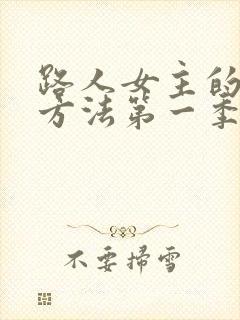 路人女主的
方法第一季
不要掃雪